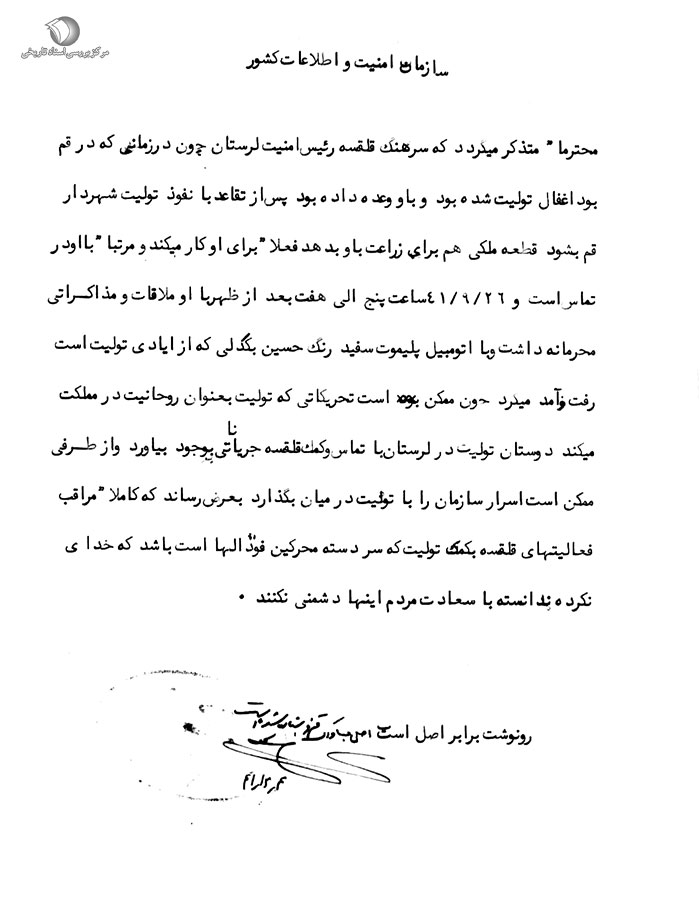 مرکز بررسی اسناد تاریخی
سازمان امنیت و اطلاعات کشور
محترما " متذکر میگردد که سرهنگ قلقسه رئیس امنیت لرستان چون در زمانی که در قم
بود اغفال تولیت شده بود و باو وعده داده بود پس از تقاعد با نفوذ تولیت شهردار
قم بشود قطعه ملکی هم برای زراعت باو بدهد فعلا " برای او کار میکند و مرتبا " با اودر
تماس است و ۴۱/۹/۲۶ ساعت پنج الی هفت بعد از ظهر با او ملاقات و مذاکراتی
محرمانه داشت و با اتومبیل پلیموت سفید رنگ حسین بگدلی که از ایادی تولیت است
رفت وآمد میکرد چون ممکن است تحریکاتی که تولیت بعنوان روحانیت در مملکت
میکند دوستان تولیت در لرستان با تماس وکمک قلقسه جریاناتی بوجود بیاورد واز طرفی
ممکن است اسرار سازمان را با تولیت در میان بگذارد بعرض رساند که کاملا " مراقب
فعالیتهای قلقسه بکمک تولیت که سر دسته محرکین فوдалها است باشد که خدای
نکرده ندانسته با سعادت مردم اینها دشمنی نکنند .
رونوشت برابر اصل است